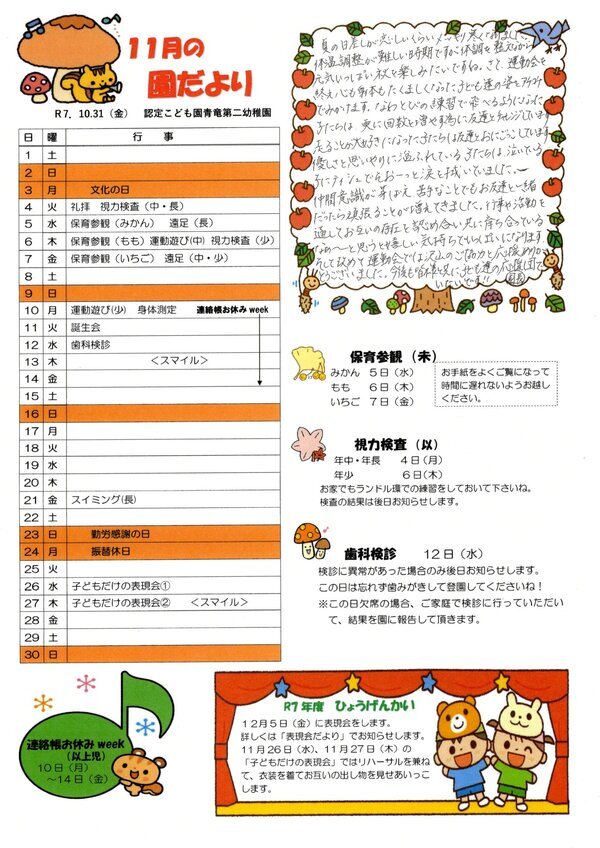 11月の
園だより
R7. 10.31(金) 認定こども園青竜第二幼稚園
日 曜 行 事
1 土
2 日
3 月 文化の日
4 火 礼拝 視力検査(中・長)
5 水 保育参観(みかん) 遠足(長)
6 木 保育参観(もも)運動遊び(中) 視力検査(少)
7 金 保育参観(いちご) 遠足(中・少)
8 土
9 日
10 月 運動遊び(少) 身体測定 連絡帳お休みweek
11 火 誕生会
12 水 歯科検診
13 木 <スマイル>
14 金
15 土
16 日
17 月
18 火
19 水
20 木
21 金 スイミング(長)
22 土
23 日 勤労感謝の日
24 月 振替休日
25 火
26 水 子どもだけの表現会①
27 木 子どもだけの表現会② <スマイル>
28 金
29 土
30 日
連絡帳お休みweek
(以上児)
10日(月)
～14日(金)
夏の日差しが恋しいくらいメッキリ寒くなりました。
体温調整が難しい時期ですが体調を整えながら
元気いっぱい秋を楽しみたいですね。さて、運動会を
終え心も身体もたくましくなった子ども達の姿を
でみかけます。なわとびの練習で遊べるようになった
子たちは 更に回数を増やす為に友達とチャレンジしています
走ることが大好きになった子たちは友達とおにごっこしています
優しさと思いやりに溢れている子たちは泣いている
子にティッシュでそおーっと涙を拭いていました。
仲間意識が芽ばえ 苦手なことでもお友達と一緒
だったら頑張ることが増えてきました。行事や活動を
通してお互いの存在を認め合い 共に育ち合っている
なぁ～と思うと嬉しい気持ちでいっぱいになります
そして改めて運動会では沢山のご協力と応援ありが
とうございました。今後も皆様と共に、子ども達の応援団で
いたいです!!
保育参観(未)
みかん 5日(水)
もも 6日(木)
いちご 7日(金)
お手紙をよくご覧になって
時間に遅れないようお越し
ください。
視力検査(以)
年中・年長 4日(月)
年少 6日(木)
お家でもランドル環での練習をしておいて下さいね。
検査の結果は後日お知らせします。
歯科検診 12日(水)
検診に異常があった場合のみ後日お知らせします。
この日は忘れず歯みがきして登園してくださいね!
※この日欠席の場合、ご家庭で検診に行っていただい
て、結果を園に報告して頂きます。
R7年度 ひょうげんかい
12月5日(金)に表現会をします。
詳しくは「表現会だより」でお知らせします。
11月26日(水)、11月27日(木)の
「子どもだけの表現会」ではリハーサルを兼ね
て、衣装を着てお互いの出し物を見せあいっこ
します。